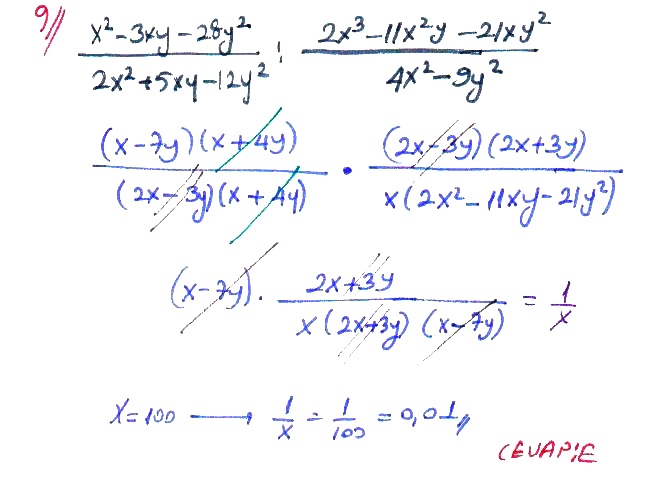 9// x²-3xy-28y² / 2x²+5xy-12y² : 2x³-11x²y-21xy² / 4x²-9y²
(x-7y)(x+4y) / (2x-3y)(x+4y) · (2x-3y)(2x+3y) / x(2x²-11xy-21y²)
(x-7y) · 2x+3y / x(2x+3y)(x-7y) = 1/x
x=100 → 1/x = 1/100 = 0,01//
CEVAP:E